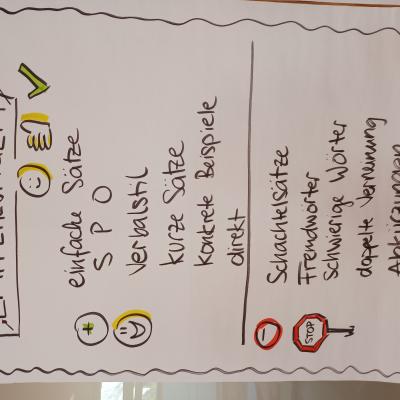 einfache Sätze
S P O
Verbalstil
kurze Sätze
konkrete Beispiele
direkt
Schachtelsätze
STOP
Fremdwörter
schwierige Wörter
doppelte Verneinung
Abkürzungen